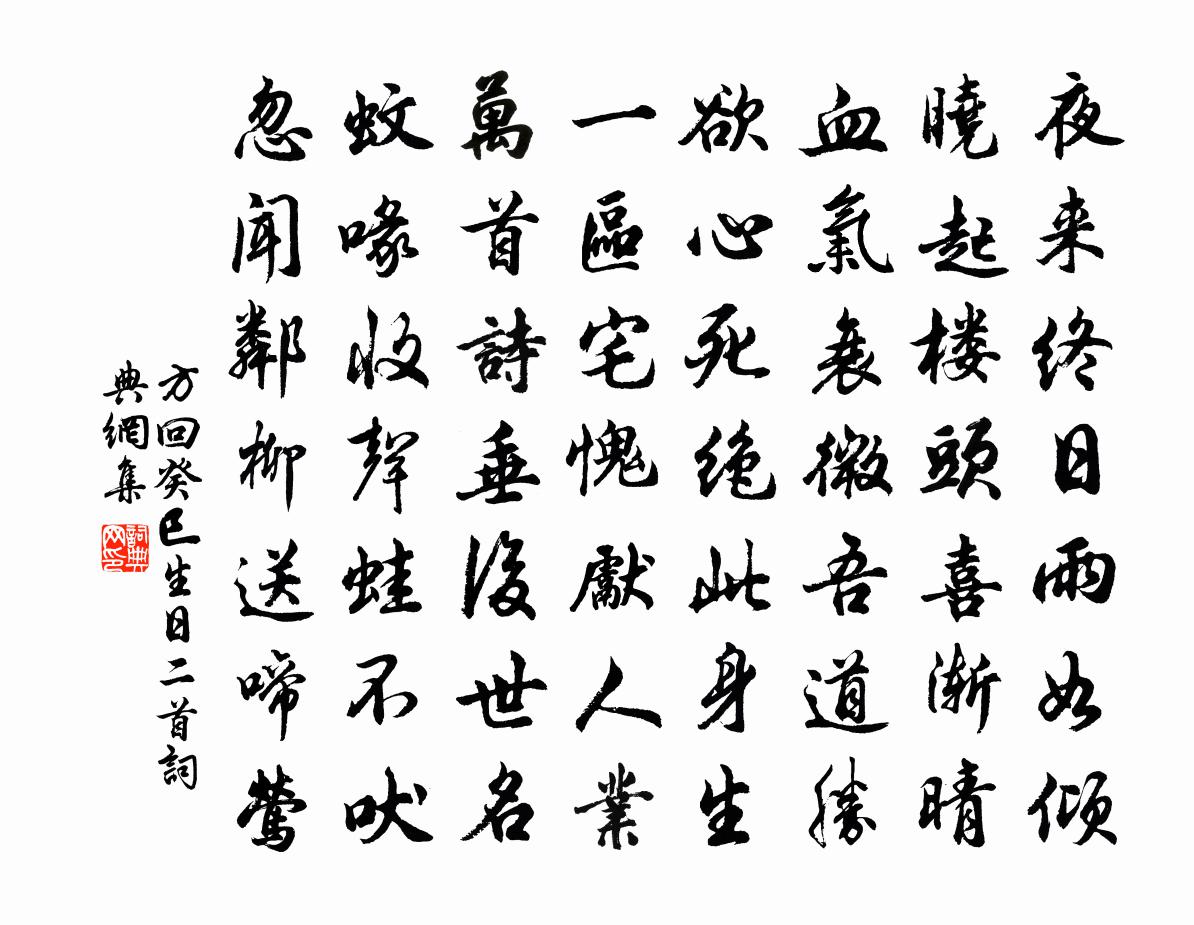 夜来终日雨如倾
曉起楼頭喜漸晴
血氣衰微吾道勝
欲心死绝此身生
一區宅愧獻人業
萬首詩垂後世名
蚊喙收聲蛙不吠
忽聞鄰柳送啼鶯
方回癸巳生日二首詞
典網集
詞典网印